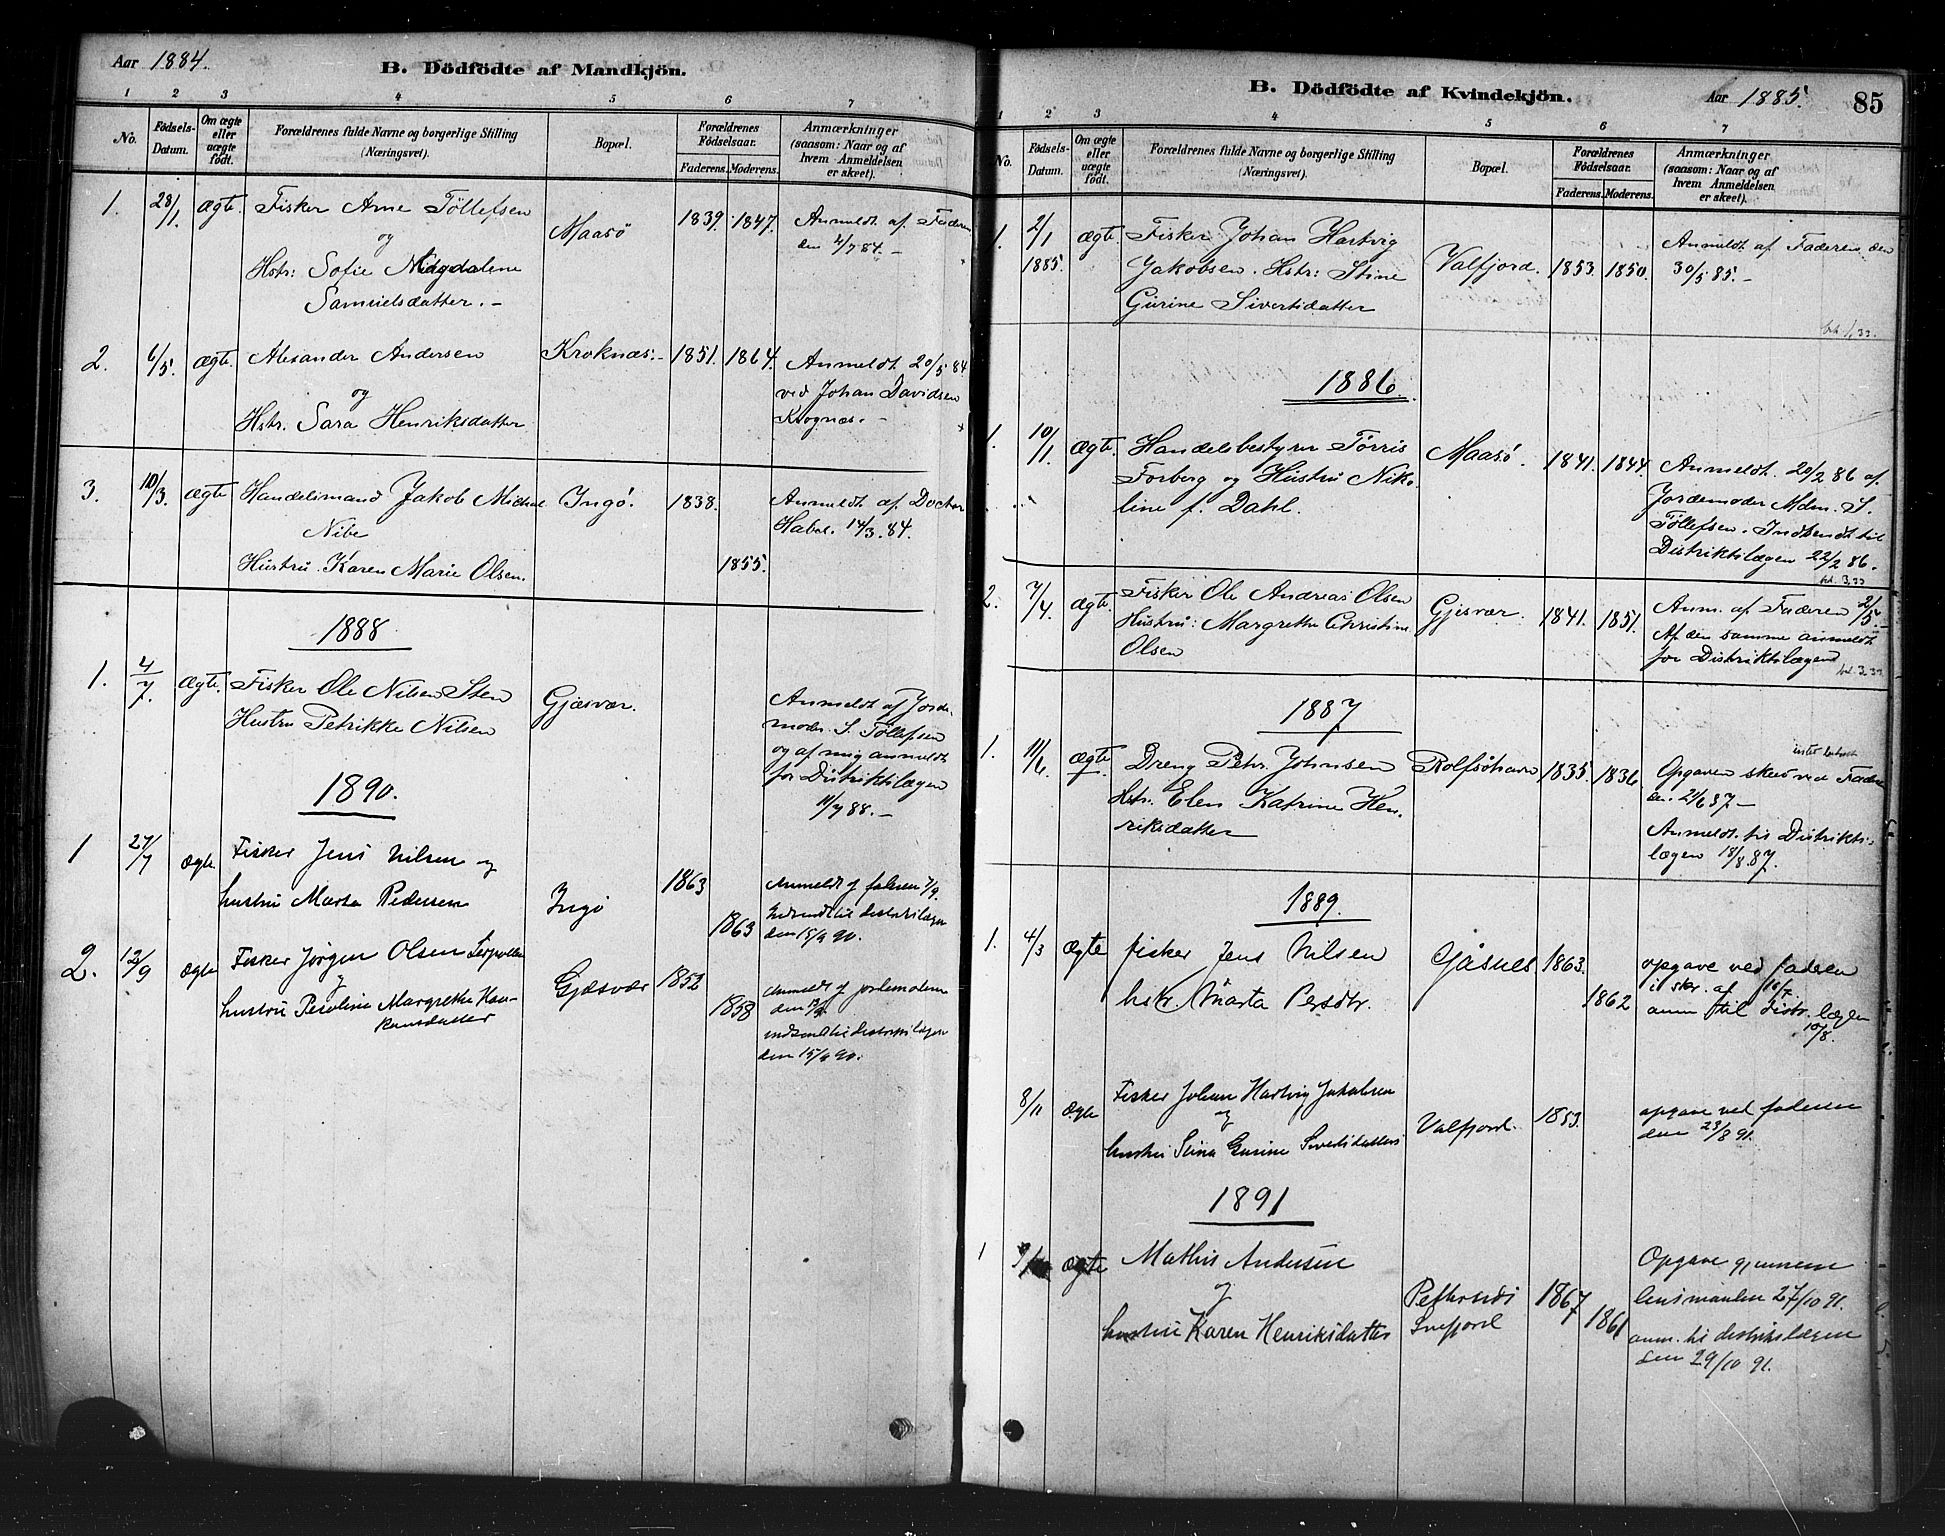 Aar 1884.
B. Dödfödte af Mandkjön.
1 2 3 4 5 6 7
No.
Födsels-Datum.
Om ægte eller uægte födt.
Forældrenes fulde Navne og borgerlige Stilling
(Næringsvei).
Bopæl.
Forældrenes Födselsaar.
Faderens. Moderens.
Anmærkninger
(saasom: Naar og af
hvem Anmeldelsen
er skeet).
1. 28/1. ægte. Fisker Arne Töllefsen
og
Hstr: Sofie Magdalene
Samuelsdatter. -
Maasö
1839. 1847.
Anmeldt af Faderen
den 4/7 84. -
2. 6/5. ægte. Alexander Andersen
og
Hstr. Sara Henriksdatter
Kroknæs. -
1851. 1864.
Anmeldt 20/5 84
ved Johan Davidsen
Krognæs. -
3. 10/3. ægte. Handelsmand Jakob Michal
Nibe
Hustru. Karen Marie Olsen.
Ingö.
1838.
1855.
Anmeldt af Doctor
Habel. 14/3. 84.
1888.
1. 4/7. ægte. Fisker Ole Nilsen Sten
Hustru Petrikke Nilsen
Gjæsvær.
Anmeldt af Jorde-
moder. S. Töllefsen
og af mig anmeldt
for Distriktslægen
11/7 88. -
1890.
1 27/7 ægte Fisker Jens Nilsen og
hustru Marta Pedersen
Ingö
1863
1863
Anmeldt af faderen 7/9.
Indsendt til distriktslægen
den 15/9 90.
2. 12/9 ægte Fisker Jörgen Olsen
og
hustru Margrethe Han-
Gjæsvær
1852
1858
Anmeldt af jordemoderen
den
indsendt til distriktslægen
den 15/9 90.
B. Dödfödte af Kvindekjön.
Aar 1885.
85
1 2 3 4 5 6 7
No.
Födsels-Datum.
Om ægte eller uægte födt.
Forældrenes fulde Navne og borgerlige Stilling
(Næringsvei).
Bopæl.
Forældrenes Födselsaar.
Faderens. Moderens.
Anmærkninger
(saasom: Naar og af
hvem Anmeldelsen
er skeet).
1. 2/1 1885. ægte. Fisker Johan Hartvig
Jakobsen. Hstr: Stine
Gurine Sivertsdatter
Valfjord.
1853. 1850.
Anmeldt af Faderen den
30/5 85. -
1886.
1. 10/1. ægte. Handelsbestyrer Törris
Forberg og Hustru Niko-
line f. Dahl.
Maasö.
1841. 1844.
Anmeldt. 20/2 86 af
Jordemoder Mdm. S.
Töllefsen. Indsendt til
Distriktslægen 22/2 86.
2. 7/4. ægte. Fisker Ole Andreas Olsen
Hustru: Margrethe Christine
Olsen
Gjesvær.
1841. 1851.
Anm. af Faderen 2/5. -
Af den samme anmeldt
for Distriktslægen
1887
1. 11/6. ægte Dreng Petr. Johnsen
Hstr. Elen Katrine Hen-
riksdatter
Rolfsöhavn
1835 1836
Opgaven skeet ved Fader
den. 21/6 87 -
Anmeldt til Distrikts-
lægen 18/8. 87.
1889.
1. 4/3 ægte fisker Jens Nilsen
hstr. Marta Persdtr.
Gåsnes
1863.
1862
opgave ved faderen
i skr. af 16/7
anm til distr. lægen
10/8.
8/11 ægte Fisker Johan Hartvig Jakobsen
og
hustru Stina Gurine Sivertsdatter
Valfjord.
1853.
opgave ved faderen
den 23/8 91.
1891
1 9/ ægte Mathis Andersen
og
hustru Karen Henriksdatter
1867
1861
Opgave gjennem
lensmanden 27/10 91.
anm. til distriktslægen
den 29/10 91.